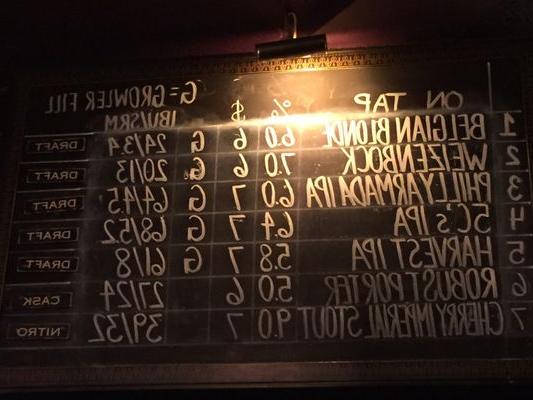 ON TAP % $ G=GROWLER FILL
IBU/SRM
1 BELGIAN BLONDE 6.0 6 G 24/3.4 DRAFT
2 WEIZENBOCK 7.0 6 G 20/13 DRAFT
3 PHILLY ARMADA IPA 6.0 7 G 64/4.5 DRAFT
4 5C's IPA 6.4 7 G 68/5.2 DRAFT
5 HARVEST IPA 5.8 7 G 61/8 DRAFT
6 ROBUST PORTER 5.0 6 27/24 CASK
7 CHERRY IMPERIAL STOUT 9.0 7 39/32 NITRO